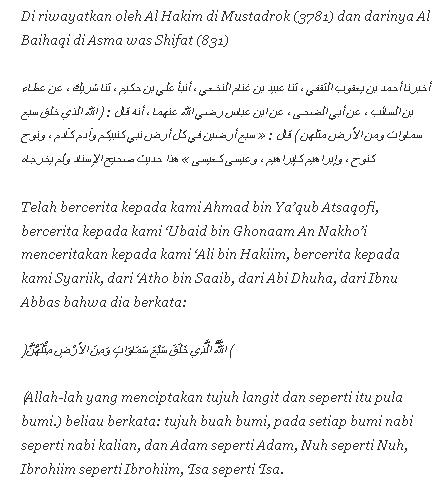 Di riwayatkan oleh Al Hakim di Mustadrok (3781) dan darinya Al
Baihaqi di Asma was Shifat (831)
أخبرنا أحمد بن يعقوب الثقفي ، ثنا عبيد بن غنام النخعي ، أنبأ علي بن حكيم ، ثنا شريك ، عن عطاء
بن السائب ، عن أبي الضحى ، عن ابن عباس رضي الله عنهما ، أنه قال : (الله الذي خلق سبع
سماوات ومن الأرض مثلهن) قال : « سبع أرضين في كل أرض نبي كنبيكم وآدم كآدم ، ونوح
كنوح ، وإبراهيم كإبراهيم ، وعيسى كعيسى » هذا حديث صحيح الإسناد ولم يخرجاه
Telah bercerita kepada kami Ahmad bin Ya'qub Atsaqofi,
bercerita kepada kami 'Ubaid bin Ghonaam An Nakho'i
menceritakan kepada kami 'Ali bin Hakiim, bercerita kepada
kami Syariik, dari 'Atho bin Saaib, dari Abi Dhuha, dari Ibnu
Abbas bahwa dia berkata:
(اللَّهُ الَّذِي خَلَقَ سَبْعَ سَمَاوَاتٍ وَمِنَ الأَرْضِ مِثْلَهُنَّ)
(Allah-lah yang menciptakan tujuh langit dan seperti itu pula
bumi.) beliau berkata: tujuh buah bumi, pada setiap bumi nabi
seperti nabi kalian, dan Adam seperti Adam, Nuh seperti Nuh,
Ibrohiim seperti Ibrohiim, 'Isa seperti 'Isa.